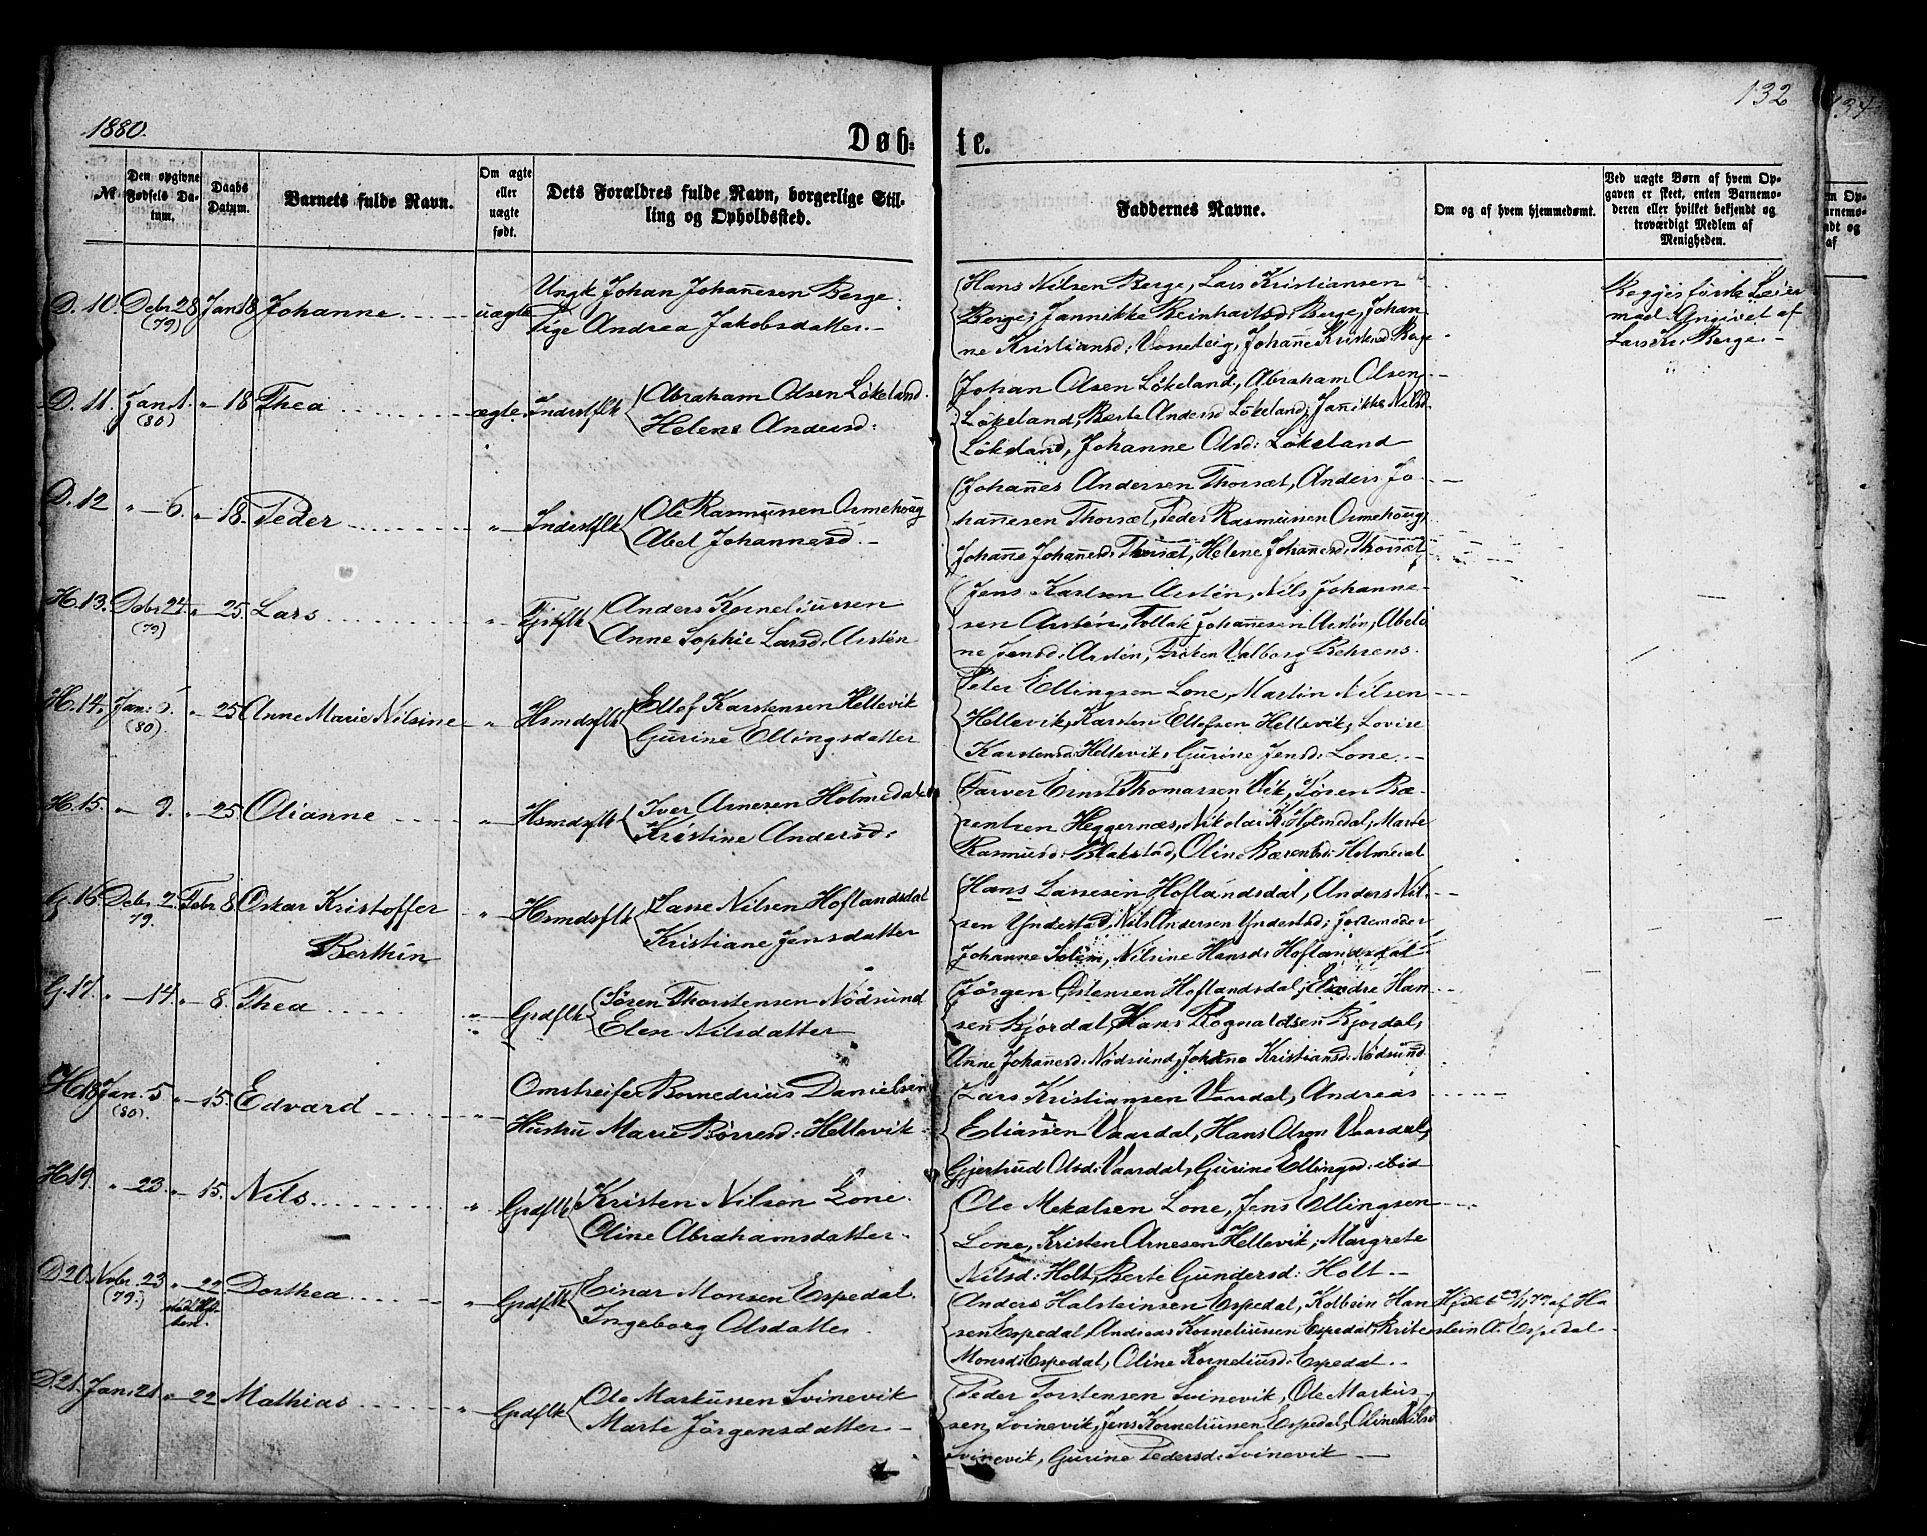 132
1880.
Døb-
te.
№
Den opgivne Fødsels Datum.
Daabs Datum.
Barnets fulde Navn.
Om ægte eller uægte født.
Dets Forældres fulde Navn, borgerlige Stilling og Opholdssted.
Faddernes Navne.
Om og af hvem hjemmedøbt.
Ved uægte Børn af hvem Opgaven er skeet, enten Barnemoderen eller hvilket bekjendt og troværdigt Medlem af Menigheden.
D. 10. Debr 28 (79) Jan 18 Johanne uægte
Ungk Johan Johanesen Berge.
Pige Andrea Jakobsdatter.
Hans Nilsen Berge, Lars Kristiansen
Berge, Jannikke Reinhartsd: Berge, Johan-
ne Kristiansd: Vosseteig, Johane Kristensd Berge
Begges første Leier-
maal. Angivet af
Lars Kr. Berge.
D. 11. Jan. 1. (80) " 18 Thea ægte. Inderstflk
Abraham Olsen Løkeland.
Helene Andersd:
Johan Olsen Løkeland, Abraham Olsen
Løkeland, Berte Andersd Løkeland, Janikke Nilsd.
Løkeland, Johanne Olsd: Løkeland
D. 12 " 6. " 18. Peder " Inderstflk
Ole Rasmussen Ormehoug
Abel Johannesd.
Johanes Andersen Thorsæt, Anders Jo-
hanesen Thorsæt, Peder Rasmussen Ormehoug,
Johane Johanesd: Thorsæt, Helene Johanesd: Thorsæt
H. 13. Debr 24. (79) " 25. Lars "
Anders Korneliussen
Anne Sophie Larsd: Arstén
Jens Karlsen Arstén, Nils Johanne-
sen Arstén, Tollak Johanesen Arstén, Abelo
ne Jensd: Arstén, Frøken Valborg Behrens.
H. 14. Jan: 5. (80) " 25 Anne Marie Nilsine " Hsmdsflk
Ellef Karstensen Hellevik
Gurine Ellingsdatter
Peter Ellingsen Lone, Martin Nilsen
Hellevik, Karsten Ellefsen Hellevik, Lovise
Karstensd: Hellevik, Gurine Jensd: Lone.
H. 15. " 9. " 25. Olianne " Hsmdsflk
Iver Arnesen Holmedal
Kristine Andersd:
Farver Ernst Thomassen Vik, Søren Bæ-
rentsen Heggernæs, Nikolai K. Holmedal, Marte
Rasmusd: Blakstad, Oline Bærentsd: Holmedal
G. 16 Debr 2. 79. Febr 8. Oskar Kristoffer
Berthin
" Hsmdsflk
Lasse Nilsen Hoflandsdal
Kristiane Jensdatter
Hans Lassesen Hoflandsdal, Anders Nil-
sen Yndestad, Nils Andersen Yndestad, Jordemoder
Johanne Solem, Nilsine Hansd: Hoflandsdal
G. 17. " 14. " 8. Thea " Grdflk
Søren Thorstensen Nødsund
Elen Nilsdatter
Jørgen Østensen Hoflandsdal, Endre Han-
sen Bjordal, Hans Rognaldsen Bjordal,
Anne Johanesd: Nødsund, Johanne Kristiansd: Nødsund
H. 18 Jan. 5 (80). " 15. Edvard "
Omstreifer Bornedrius Danielsen
Hustru Marie Børresd: Hellevik.
Lars Kristiansen Vaardal, Andreas
Eliassen Vaardal, Hans Olsen Vaardal,
Gjertrud Olsd: Vaardal, Gurine Ellingsd: ibid
H. 19. " 23. " 15. Nils " Grdflk
Kristen Nilsen Lone.
Oline Abrahamsdatter.
Ole Mekalsen Lone, Jens Ellingsen
Lone, Kristen Arnesen Hellevik, Margrete
Nilsd: Holt, Berte Gundersd: Holt.
D. 20. Novbr. 23 (79.) " 22 Dorthea " Grdflk
Einar Monsen Espedal.
Ingeborg Olsdatter.
Anders Halsteinsen Espedal, Kolbein Han
sen Espedal, Andreas Korneliussen Espedal,
Monsd: Espedal, Oline Korneliusd: Espedal.
Hjdbt 23/11 79 af Ha
stein A. Espedal
D. 21. Jan: 21. " 22 Mathias " Grdflk
Ole Markussen Svinevik
Marte Jørgensdatter
Peder Torstensen Svinevik, Ole Markus-
sen Svinevik, Jens Korneliussen Espedal, Oline Nilsd
Svinevik, Gurine Pedersd: Svinevik